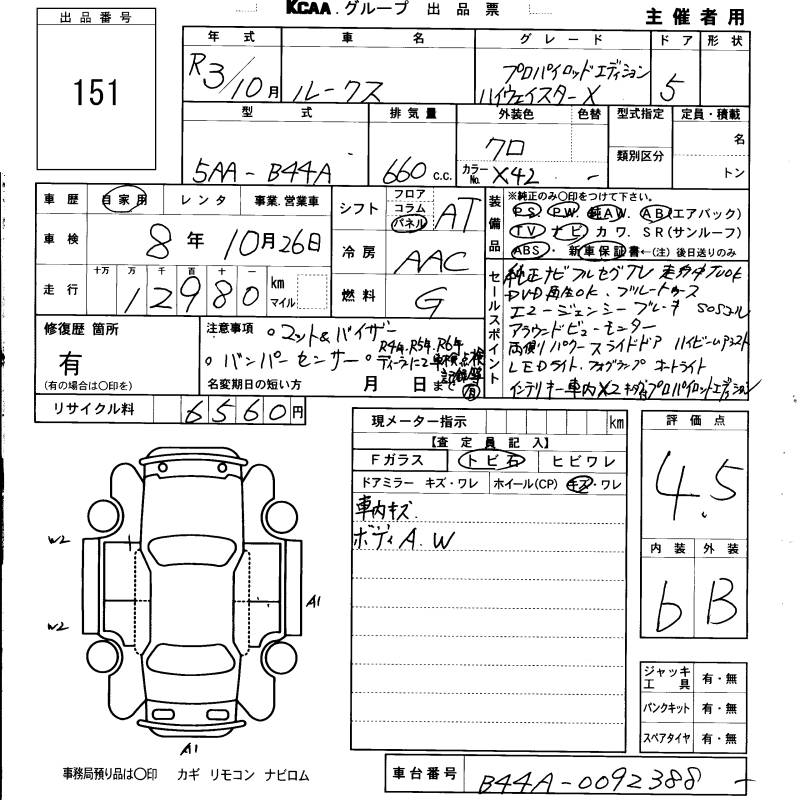 KCAA.グループ 出品票
主催者用
出品番号
151
年式 車名 グレード ドア 形状
R3/10月 ルークス プロパイロットエディション
ハイウェイスターX 5
型式 排気量 外装色 色替 型式指定 定員・積載
5AA-B44A 660 c.c. クロ
カラーNo. X42 -
類別区分
名
トン
車歴 自家用 レンタ 事業.営業車
車検 8年10月26日
走行 十万 万 千 百 十 一
12980 km マイル
シフト フロア コラム パネル AT
冷房 AAC
燃料 G
装備品
※純正のみ○印をつけて下さい。
PS. PW. 純AW. AB(エアバック)
TV ナビ カワ. SR(サンルーフ)
ABS・ 新車保証書←(注)後日送りのみ
セールスポイント
純正ナビ フルセグTV 走行中TVOK
DVD再生OK. ブルートゥース
エマージェンシーブレーキ SOSコール
アラウンドビューモニター
両側パワースライドドア ハイビームアシスト
LEDライト. フォグランプ オートライト
インテリキー車内×2 プロパイロットエディション
修復歴 箇所
有
(有の場合は○印を)
注意事項 ○マット&バイザー
○バンパーセンサー
○R4年.R5年.R6年
ディーラーにて車検点検記録簿有
名変期日の短い方 月 日まで
リサイクル料 6560円
現メーター指示 km
【査定員記入】
Fガラス トビ石 ヒビワレ
ドアミラー キズ・ワレ ホイール(CP) キズ・ワレ
車内キズ
ボディA.W
評価点
4.5
内装 外装
b B
ジャッキ工具 有・無
パンクキット 有・無
スペアタイヤ 有・無
W2
W2
A1
A1
事務局預り品は○印 カギ リモコン ナビロム
車台番号 B44A-0092388